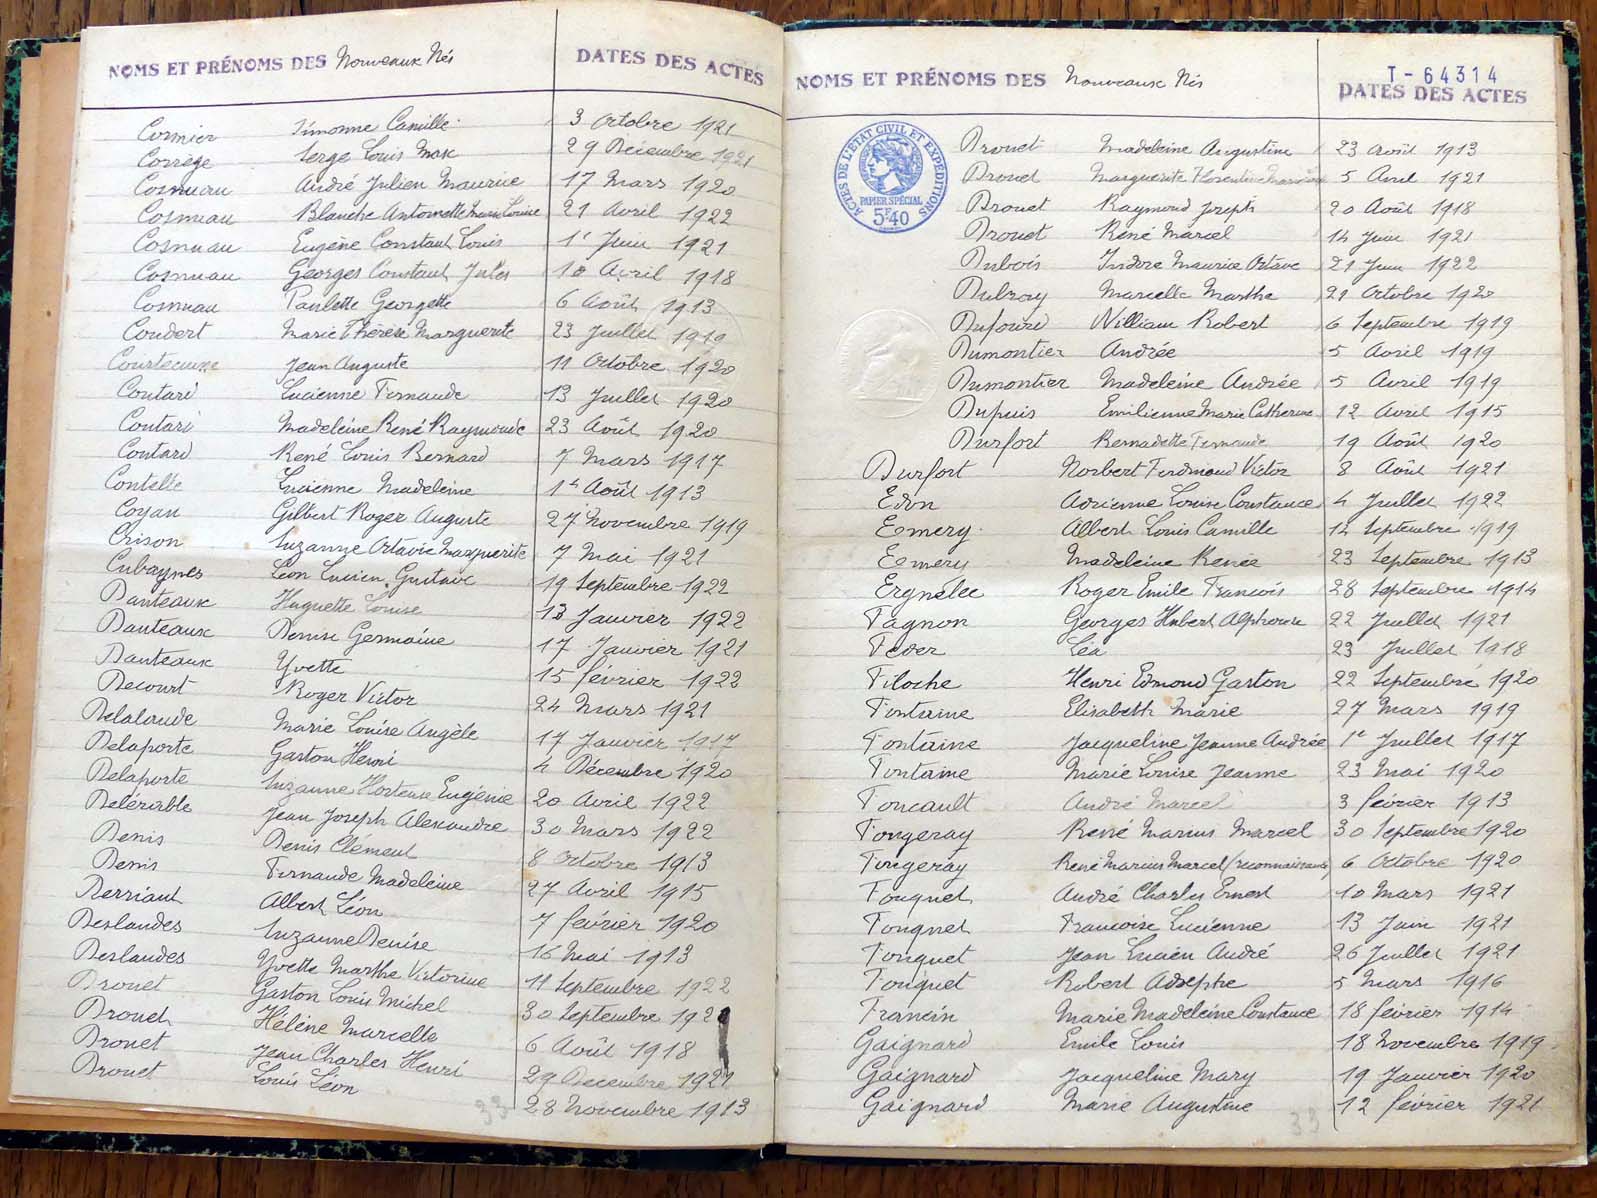 NOMS ET PRÉNOMS DES Nouveaux Nés DATES DES ACTES
Cormier Simonne Camille 3 Octobre 1921
Corrège Serge Louis Max 29 Décembre 1921
Cosnuau André Julien Maurice 17 Mars 1920
Cosnuau Blanche Antoinette Marie Louise 21 Avril 1922
Cosnuau Eugène Constant Louis 1r Juin 1921
Cosnuau Georges Constant Jules 10 Avril 1918
Cosnuau Paulette Georgette 6 Août 1913
Coudert Marie Thérèse Marguerite 23 Juillet 1919
Courtecuisse Jean Auguste 11 Octobre 1920
Coutard Lucienne Fernande 13 Juillet 1920
Coutard Madeleine René Raymonde 23 Août 1920
Coutard René Louis Bernard 7 Mars 1917
Coutelle Lucienne Madeleine 1r Août 1913
Coyau Gilbert Roger Auguste 27 Novembre 1919
Crison Suzanne Octavie Marguerite 7 Mai 1921
Cubaynes Léon Lucien Gustave 19 Septembre 1922
Danteaux Huguette Louise 13 Janvier 1922
Danteaux Denise Germaine 17 Janvier 1921
Danteaux Yvette 15 février 1922
Decourt Roger Victor 24 Mars 1921
Delalande Marie Louise Angèle 17 Janvier 1917
Delaporte Gaston Henri 4 Décembre 1920
Delaporte Suzanne Hortense Eugénie 20 Avril 1922
Delérable Jean Joseph Alexandre 30 Mars 1922
Denis Denis Clément 8 Octobre 1913
Denis Fernande Madeleine 27 Avril 1915
Derriant Albert Léon 7 février 1920
Deslandes Suzanne Denise 16 Mai 1913
Deslandes Yvette Marthe Victorine 11 Septembre 1922
Drouet Gaston Louis Michel 30 Septembre
Drouet Hélène Marcelle 6 Août 1918
Drouet Jean Charles Henri 29 Décembre 1921
Drouet Louis Léon 28 Novembre 1913
33
T-64314
NOMS ET PRÉNOMS DES Nouveaux Nés DATES DES ACTES
ACTES DE L'ÉTAT CIVIL ET EXPÉDITIONS
PAPIER SPÉCIAL
5F40
Drouet Madeleine Augustine 23 Août 1913
Drouet Marguerite Florentine 5 Avril 1921
Drouet Raymond Joseph 20 Août 1918
Drouet René Marcel 14 Juin 1921
Dubois Isidore Maurice Octave 21 Juin 1922
Dubray Marcelle Marthe 21 Octobre 1920
Dufourd William Robert 6 Septembre 1919
Dumontier Andrée 5 Avril 1919
Dumontier Madeleine Andrée 5 Avril 1919
Dupuis Emilienne Marie Catherine 12 Avril 1915
Durfort Bernadette Fernande 19 Août 1920
Durfort Norbert Ferdinand Victor 8 Août 1921
Edon Adrienne Louise Constance 4 Juillet 1922
Eemery Albert Louis Camille 12 Septembre 1919
Eemery Madeleine Renée 23 Septembre 1913
Ergnélée Roger Emile François 28 Septembre 1914
Fagnon Georges Hubert Alphonse 22 Juillet 1921
Feder Léa 23 Juillet 1918
Filoche Henri Edmond Gaston 22 Septembre 1920
Fontaine Elisabeth Marie 27 Mars 1919
Fontaine Jacqueline Jeanne Andrée 1r Juillet 1917
Fontaine Marie Louise Jeanne 23 Mai 1920
Foucault André Marcel 3 février 1913
Fougeray René Marius Marcel 30 Septembre 1920
Fougeray René Marius Marcel (reconnaissance) 6 Octobre 1920
Fouquet André Charles Ernest 10 Mars 1921
Fouquet Françoise Lucienne 13 Juin 1921
Fouquet Jean Lucien André 26 Juillet 1921
Fouquet Robert Adolphe 5 Mars 1916
Francin Marie Madeleine Constance 18 février 1914
Gaignard Emile Louis 18 Novembre 1919
Gaignard Jacqueline Mary 19 Janvier 1920
Gaignard Marie Augustine 12 février 1921
33